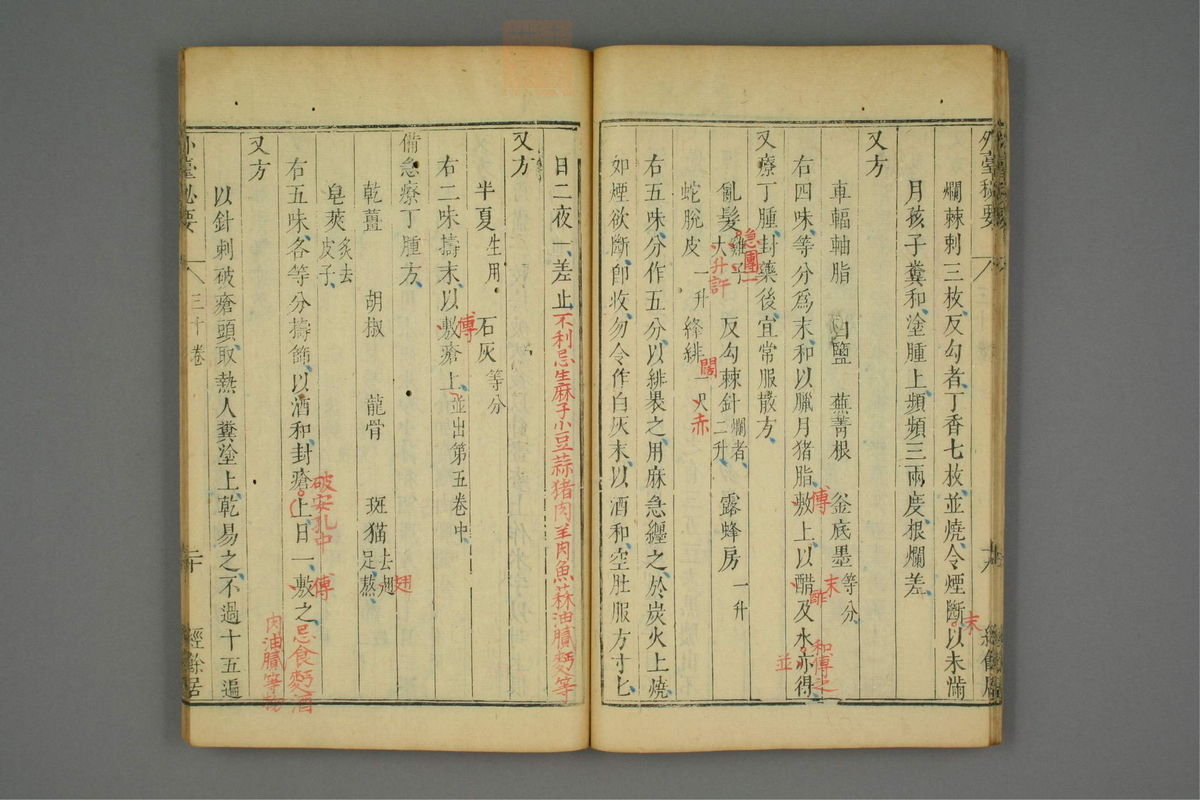 外臺秘要
爛棘刺三枚反勾者丁香七枚並燒令煙斷以未滿
末
月孩子糞和塗腫上頻頻三兩度根爛差
又方
車輻軸脂 白鹽 蕪菁根 釜底墨等分
末
右四味等分爲末和以臘月猪脂敷上以醋及水亦得
傅
酢
和傅之
並
又療丁腫封藥後宜常服散方
亂髮雞子大 反勾棘針爛者二升 露蜂房一升
團
升許
蛇脫皮一升 絳緋一尺
闊
赤
右五味分作五分以緋裹之用麻急纏之於炭火上燒
如煙欲斷卽收勿令作白灰末以酒和空肚服方寸匕
日二夜一差止
不利忌生麻子小豆蒜猪肉羊肉魚蔴油膩麪等
又方
半夏生用 石灰等分
右二味擣末以敷瘡上並出第五卷中
傅
備急療丁腫方
乾薑 胡椒 龍骨 斑猫去翅足熬
翅
皂莢炙去皮子
右五味各等分擣篩以酒和封瘡上日一敷之
破安孔中
傅
忌食麪酒
肉油膩等物
又方
以針刺破瘡頭取熱人糞塗上乾易之不過十五遍
外臺秘要
三十卷
二十
經餘居